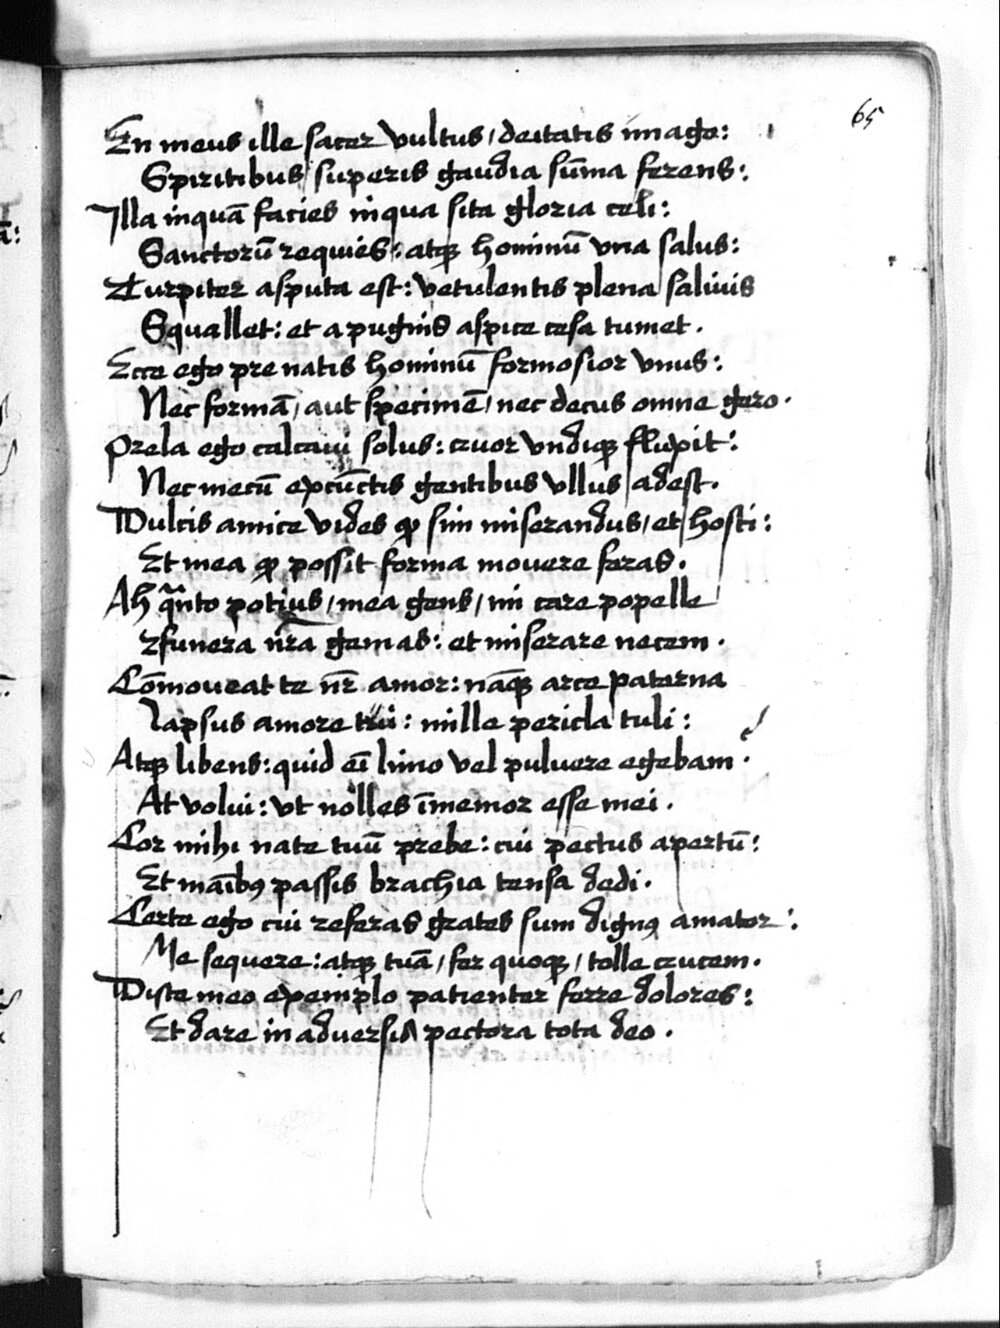 65
En meus ille sacer vultus/ deitatis imago:
Spiritibus superis gaudia sum̄a ferens:
Illa inquā facies inqua sita gloria celi:
Sanctorū requies: atq; hominū vna salus:
Turpiter asputa est: vetulentis plena salivis
Squallet: et a pugnis aspice cesa tumet.
Ecce ego pre natis hominū formosior vnus:
Nec formā/ aut specimē/ nec decus omne gero.
Prela ego calcaui solus: cruor vndiq; fluxit:
Nec mecū excūctis gentibus vllus adest.
Dulcis amice vides ꝙ sim miserandus/ et hosti:
Et mea ꝙ possit forma movere feras.
Ah quāto potius/ mea gens/ mi care popelle
funera nr̄a gemas: et miserare necem.
Cōmoveat te nr̄ amor: nāq; arce paterna
Lapsus amore tui: mille pericla tuli:
Atq; libens: quid eī limo vel pulvere egebam.
At volui: vt nolles īmemor esse mei.
Cor mihi nate tuū prebe: cui pectus apertū:
Et māibꝰ passis brachia tensa dedi.
Certe ego cui referas grates sum dignꝰ amator:
Me sequere: atq; tuā/ fer quoq;/ tolle crucem.
Disce meo exemplo patienter ferre dolores:
Et dare in adversis pectora tota deo.